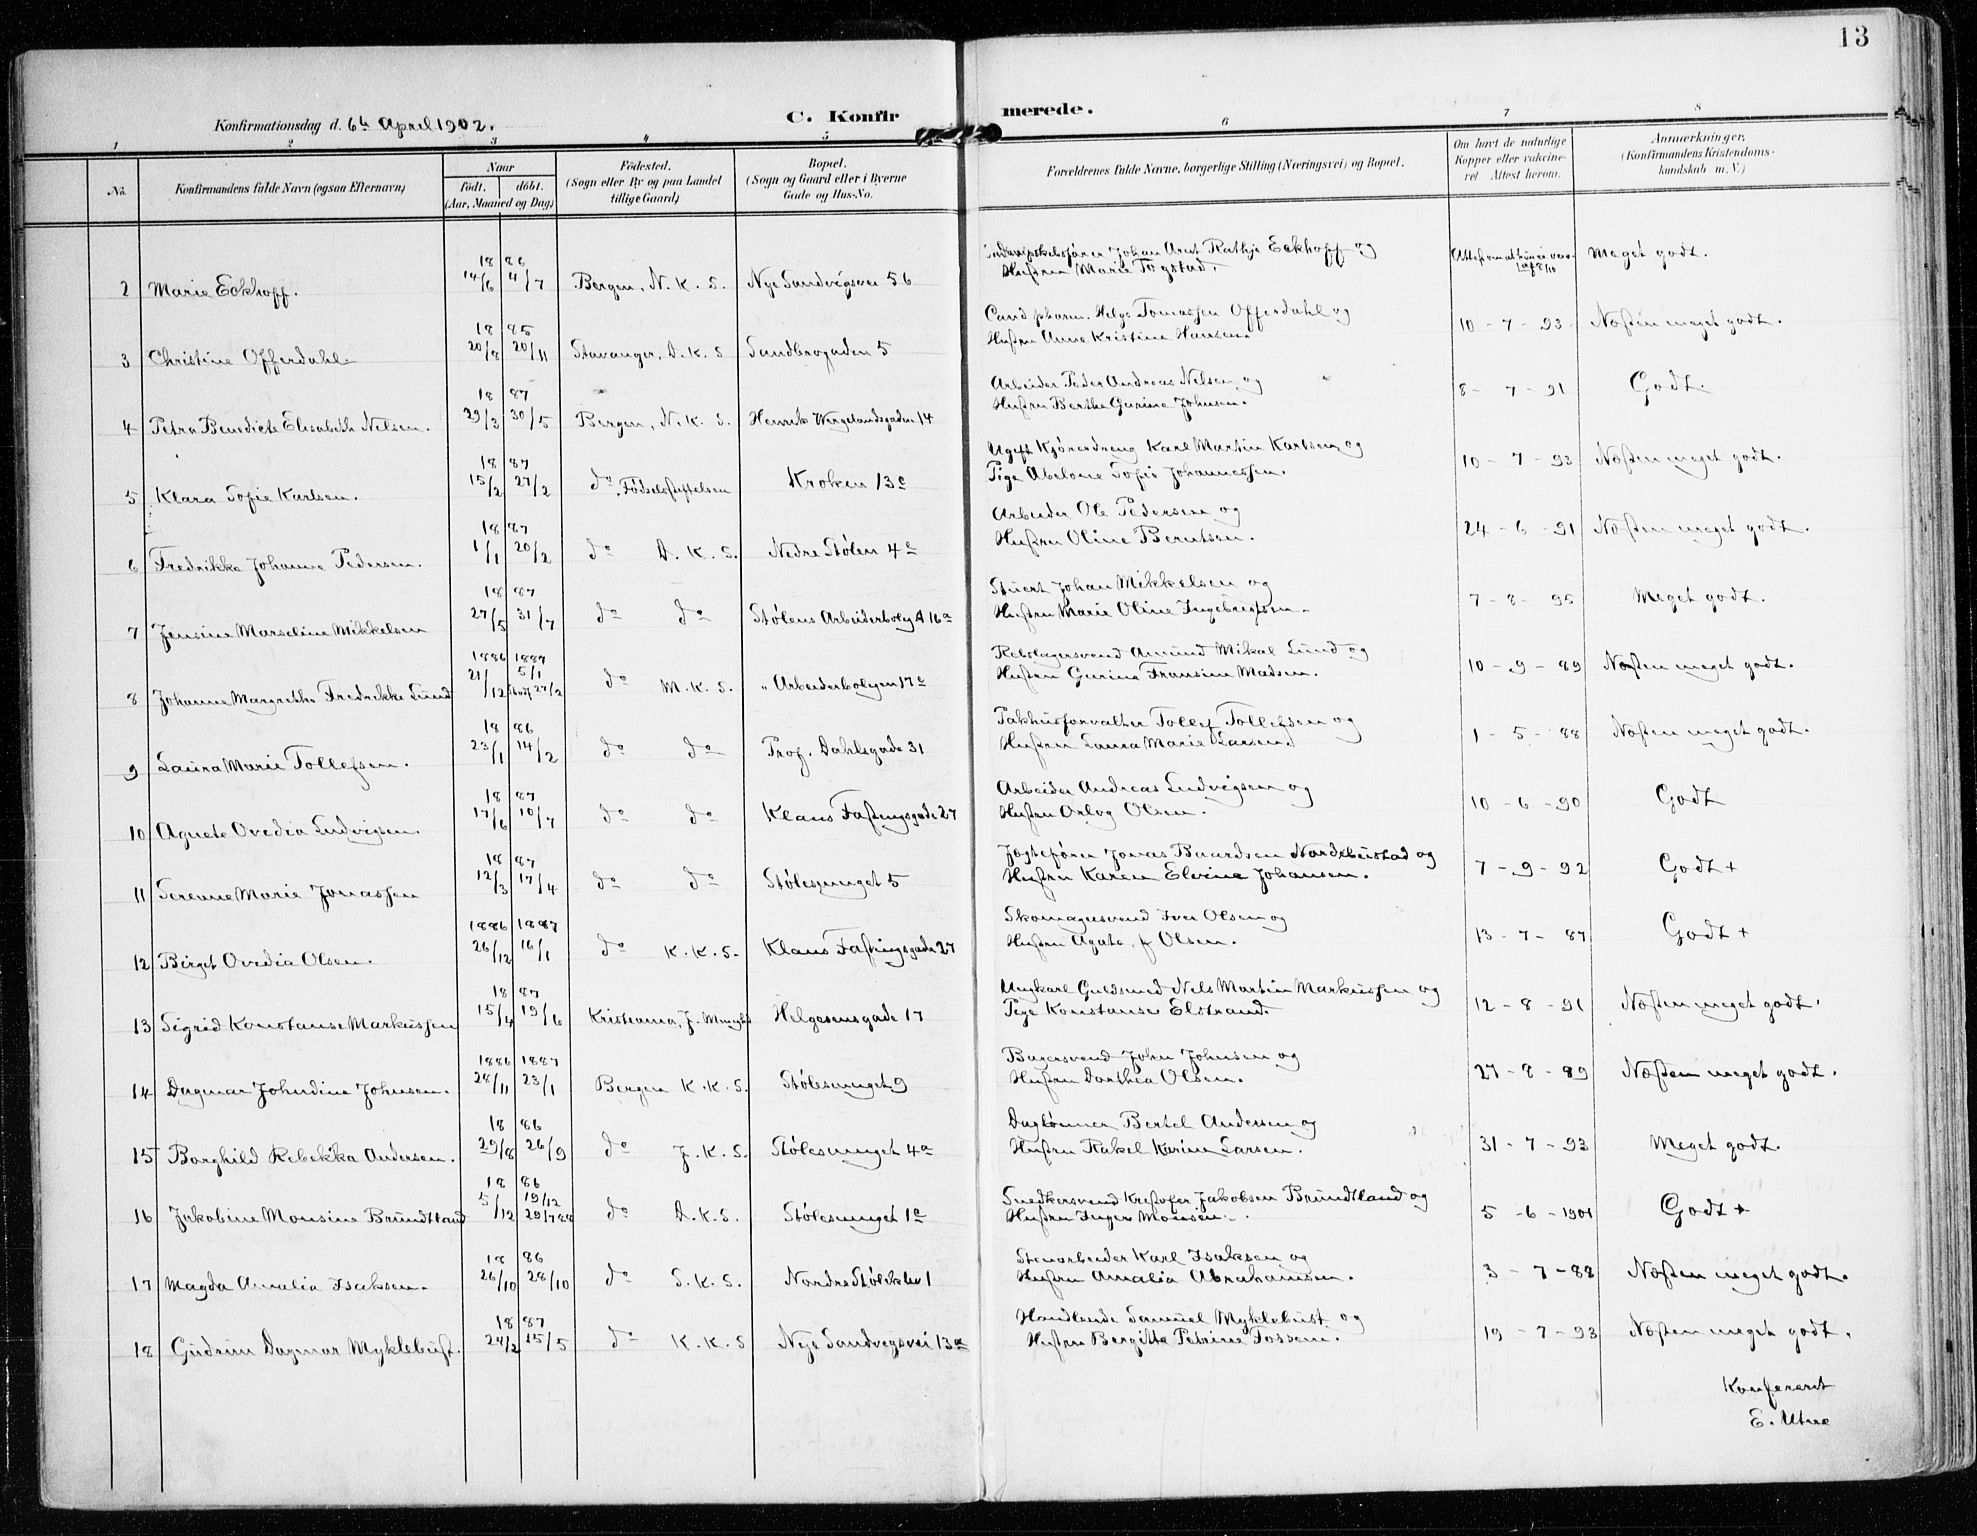 13
Konfirmationsdag d. 6te April 1902.
C. Konfir merede.
1 2 3 4 5 6 7 8
No. Konfirmandens fulde Navn (ogsaa Efternavn) Naar födt. döbt. (Aar, Maaned og Dag) Födested. (Sogn eller By og paa Landet tillige Gaard) Bopæl. (Sogn og Gaard eller i Byerne Gade og Hus-No. Forældrenes fulde Navne, borgerlige Stilling (Næringsvei) og Bopæl. Om havt de naturlige Kopper eller vakcineret. Attest herom. Anmærkninger, (Konfirmandens Kristendomskundskab m. V.)
2 Marie Eckhoff. 1886 14/6 4/7 Bergen, N. K. S. Nye Sandvigsvei 56 Johan Arnt Rathje Eckhoff og Hustru Marie Togstad. Meget godt.
3 Christine Offerdahl. 1885 20/8 20/11 Stavanger, D. K. S. Sandbrogaden 5 Cand pharm. Helge Tomassen Offerdahl og Hustru Anne Kristine Hansen. 10-7-93 Næsten meget godt.
4 Petra Benedicte Elisabeth Nelsen. 1887 29/3 30/5 Bergen, N. K. S. Henrik Wergelandsgaden 14 Arbeider Peder Andreas Nelsen og Hustru Berthe Gurine Johnsen. 8-7-91 Godt.
5 Klara Tofie Karlsen. 1887 15/2 27/2 do, Fødselsstiftelsen Kroken 13c Ugift Kjøredreng Karl Martin Karlsen og Pige Abelone Tofie Johannessen. 10-7-93 Næsten meget godt.
6 Fredrikke Johanne Pedersen. 1887 1/1 20/2 do D. K. S. Nedre Stølen 4c Arbeider Ole Pedersen og Hustru Oline Berntsen. 24-6-91 Næsten meget godt.
7 Jensine Marseline Mikkelsen 1887 27/5 31/7 do do Stølens Arbeiderbolig A 16a Stuert Johan Mikkelsen og Hustru Marie Oline Ingebrigtsen. 7-8-95 Meget godt.
8 Johanne Margrethe Fredrikke Lund 1886 1887 21/12 5/1 27/2 do M. K. S. " Arbeiderboligen 17c Rebslagersvend Amund Mikal Lund og Hustru Gurine Fransine Madsen. 10-9-89 Næsten meget godt.
9 Laura Marie Tollefsen. 1886 23/1 14/2 do do Prof. Dahlsgade 31 Pakhusforvalter Tollef Tollefsen og Hustru Laura Marie Larsen. 1-5-88 Næsten meget godt.
10 Agnete Ovedia Ludvigsen. 1887 17/6 10/7 do do Klaus Fastingsgade 27 Arbeider Andreas Ludvigsen og Hustru Orlog Olsen. 10-6-90 Godt
11 Serenne Marie Jonassen 1887 12/3 17/4 do do Stølesmuget 5 Jægtefører Jonas Baardsen Nordebustad og Hustru Karen Elvine Johansen. 7-9-92 Godt +
12 Birget Ovedia Olsen. 1886 1887 26/12 16/1 do K. K. S. Klaus Fastingsgade 27 Skomagersvend Iver Olsen og Hustru Agate, f Olsen. 13-7-87 Godt +
13 Sigrid Konstanse Markussen 1887 15/4 19/6 Kristiania, Helgesensgade 17 Ungkarl Guldsmed Nels Martin Markussen og Pige Konstanse Elstrand. 12-8-91 Næsten meget godt.
14 Dagmar Johndine Johnsen. 1886 1887 28/11 23/1 Bergen K. K. S. Stølesmuget 9 Bagersvend John Johnsen og Hustru Dorthea Olsen. 27-8-89 Næsten meget godt.
15 Borghild Rebekka Andersen. 1886 29/8 26/9 do J. K. S. Stølesmuget 4a Daglønner Bertel Andersen og Hustru Rakel Karine Larsen. 31-7-93 Meget godt.
16 Jakobine Monsine Brundtland 1886 5/12 19/12 29/7 88 do D. K. S. Stølesmuget 1c Snedkersvend Kristofer Jakobsen Brundtland og Hustru Inger Monsen. 5-6-1901 Godt +
17 Magda Amalia Isaksen. 1886 26/10 28/10 do S. K. S. Nordre Støleklev 1 Stenarbeider Karl Isaksen og Hustru Amalia Abrahamsen. 3-7-88 Næsten meget godt.
18 Gudrun Dagmar Myklebust. 1887 24/2 15/5 do K. K. S Nye Sandvigsvei 13a Handlende Samuel Myklebust og Hustru Bergitte Petrine Fossen. 19-7-93 Næsten meget godt.
Konfereret
E. Utne